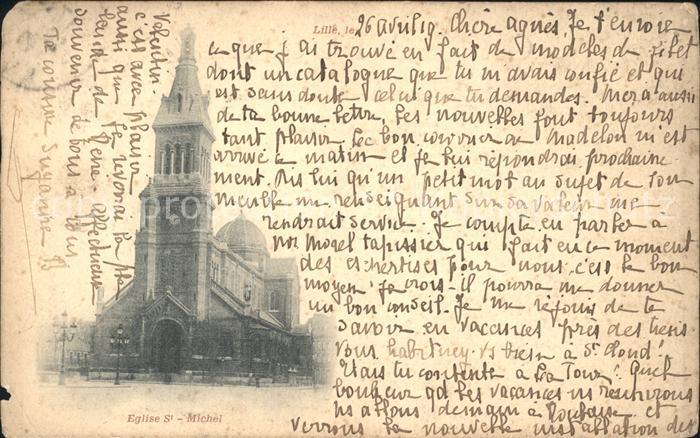 Lille, le 26 avril 19. Chère agnès. Je t'envoie
ce que j'ai trouvé en fait de modèles de filet
dont un catalogue que tu m'avais confié et qui
est sans doute celui que tu demandes. Merci aussi
de ta bonne lettre, tes nouvelles font toujours
tant plaisir. Le bon de Madelon m'est
arrivé ce matin et je lui répondrai prochaine
ment. Dis lui qu'un petit mot au sujet de son
meuble me renseignant sur sa valeur me
rendrait service. Je compte en parler à
Mr Morel tapissier qui fait en ce moment
des expertises pour nous c'est le bon
moyen je crois - il pourra me donner
un bon conseil. Je me réjouis de te
savoir en vacances près des tiens
Vous habitiez bien à St Cloud?
Etais tu contente à La Tour? Quel
bonheur qd les vacances ns réunirons
ns allons demain à et
verrons la nouvelle installation des
Valentin
c'est avec plaisir
aussi que je reverrai ta
de affectueux
souvenir de nous à vous
Ta cousine Suzanne
Eglise St - Michel